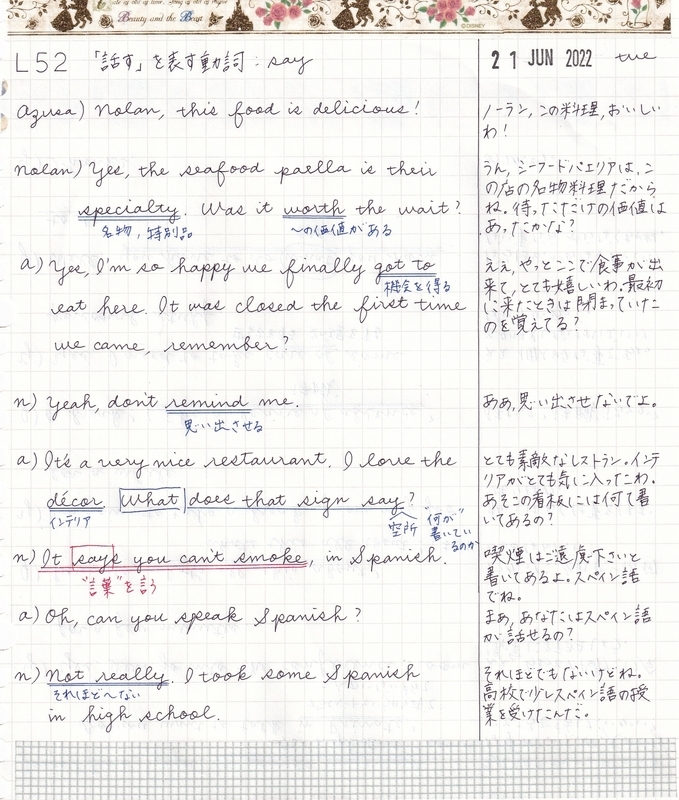 Beauty and the Beast
©DISNEY
L52 「話す」を表す動詞：say
21 JUN 2022 tue
Azusa) Nolan, this food is delicious!
ノーラン, この料理, おいしい
わ!
Nolan) Yes, the seafood paella is their
specialty. Was it worth the wait?
名物, 特別品
～の価値がある
うん, シーフードパエリアは, こ
の店の名物料理だから
ね。待っただけの価値は
あったかな?
a) Yes, I'm so happy we finally got to
機会を得る
eat here. It was closed the first time
we came, remember?
ええ, やっとここで食事が出
来て, とても嬉しいわ。最初
に来たときは閉まっていた
のを覚えてる?
n) Yeah, don't remind me.
思い出させる
ああ, 思い出させないでよ。
a) It's a very nice restaurant. I love the
décor. What does that sign say?
インテリア
空所
"何が"
書いてい
るのか
とても素敵なレストラン。インテ
リアがとても気に入ったわ。
あそこの看板には何て書
いてあるの?
n) It says you can't smoke, in Spanish.
"言葉"を言う
喫煙はご遠慮下さいと
書いてあるよ。スペイン語
でね。
a) Oh, can you speak Spanish?
まあ, あなたはスペイン語
が話せるの?
n) Not really. I took some Spanish
それほど～ない
in high school.
それほどでもないけどね。
高校で少しスペイン語の授
業を受けたんだ。